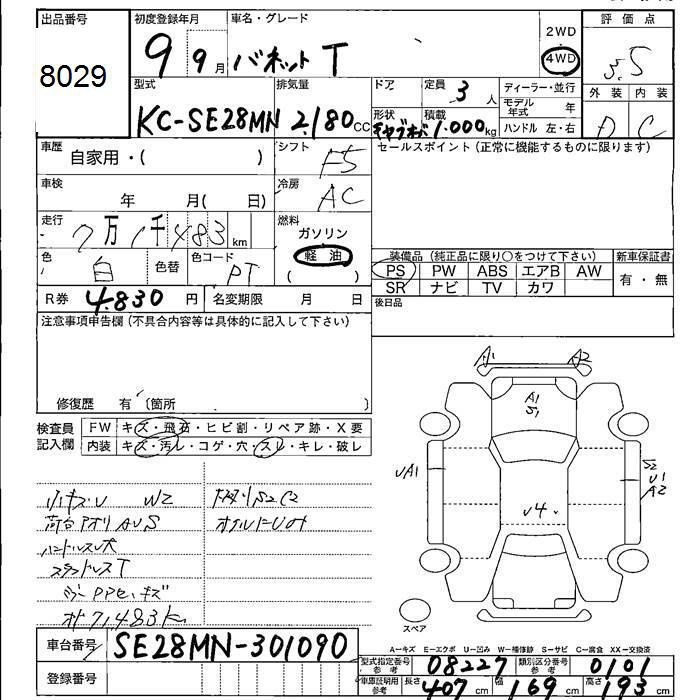 出品番号
8029
初度登録年月
9 9月
車名・グレード
バネット T
2WD
4WD
評価点
3.5
型式
KC-SE28MN
排気量
2.180cc
ドア
定員
3人
ディーラー・並行
モデル年式 年
ハンドル 左・右
形状
積載
1.000kg
外装 内装
D C
車歴
自家用・( )
シフト
F5
セールスポイント(正常に機能するものに限ります)
車検
年 月( 日)
冷房
AC
走行
7万1千483km
燃料
ガソリン
軽油
( )
色
白
色替
色コード
PT
装備品(純正品に限り○をつけて下さい)
新車保証書
PS PW ABS エアB AW
有・無
SR ナビ TV カワ
R券 4.830円
名変期限 月 日
後日品
注意事項申告欄(不具合内容等は具体的に記入して下さい)
修復歴 有〔箇所 〕
検査員記入欄
FW キズ・飛石・ヒビ割・リペア跡・X要
内装 キズ・汚レ・コゲ・穴・スレ・キレ・破レ
A1 A2
A1
S1
UA1
S2
U1
A2
U4
W2
S2 C2
荷台アオリAUS
ハンドルスレ大
スタッドレスT
71483K
スペア
A-キズ E-エクボ U-凹み W-補修跡 S-サビ C-腐食 XX-交換済
車台番号 SE28MN-301090
登録番号
型式指定番号参考 08227
類別区分番号参考 0101
車庫証明用参考 長さ 407cm 幅 169cm 高さ 193cm